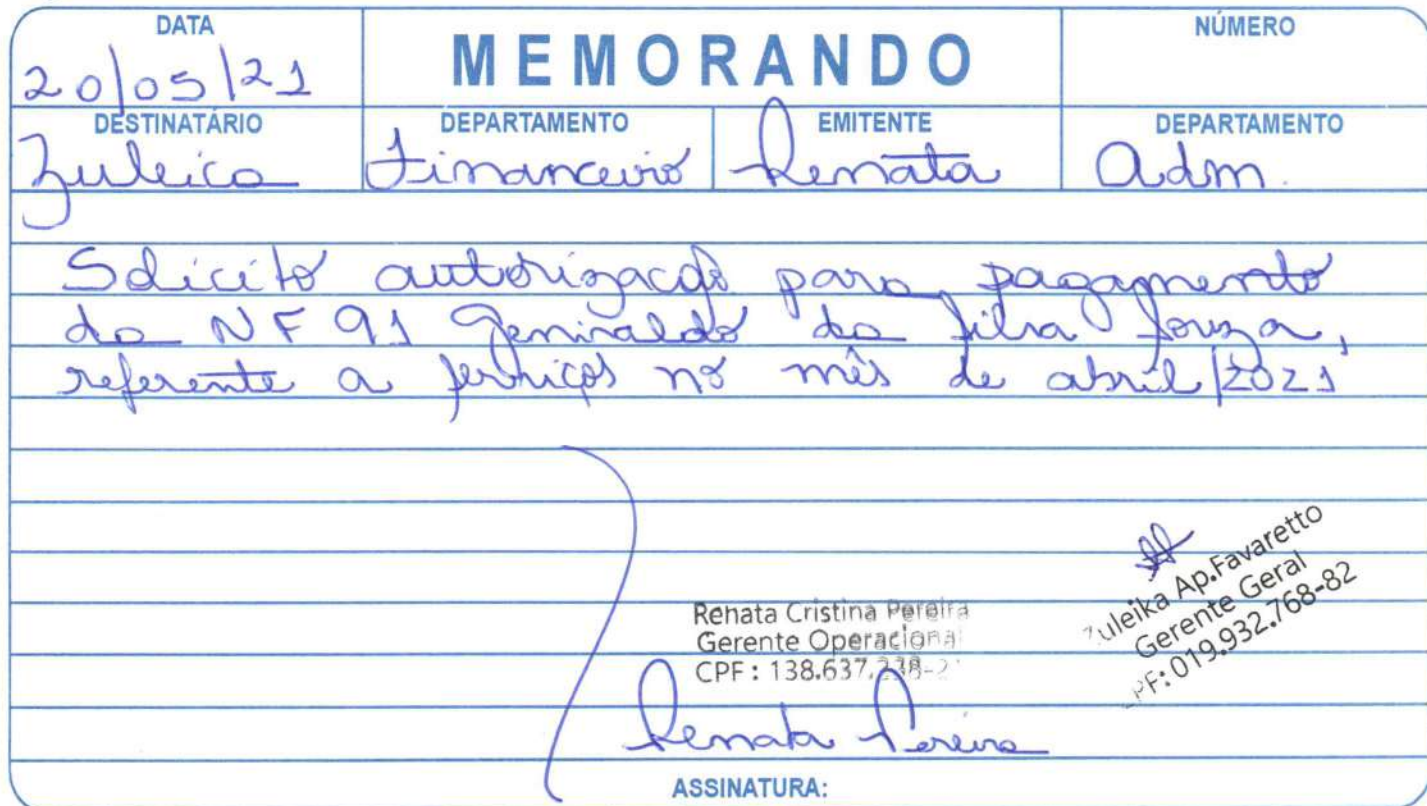 DATA
20/05/21
MEMORANDO
NÚMERO
DESTINATÁRIO
Zuleica
DEPARTAMENTO
Financeiro
EMITENTE
Renata
DEPARTAMENTO
Adm.
Solicito autorização para pagamento
da NF 91 Genivaldo da Silva Souza,
referente a serviços no mês de abril/2021
Renata Cristina Pereira
Gerente Operacional
CPF: 138.637.238-2
Zuleika Ap.Favaretto
Gerente Geral
PF: 019.932.768-82
Renata Pereira
ASSINATURA: